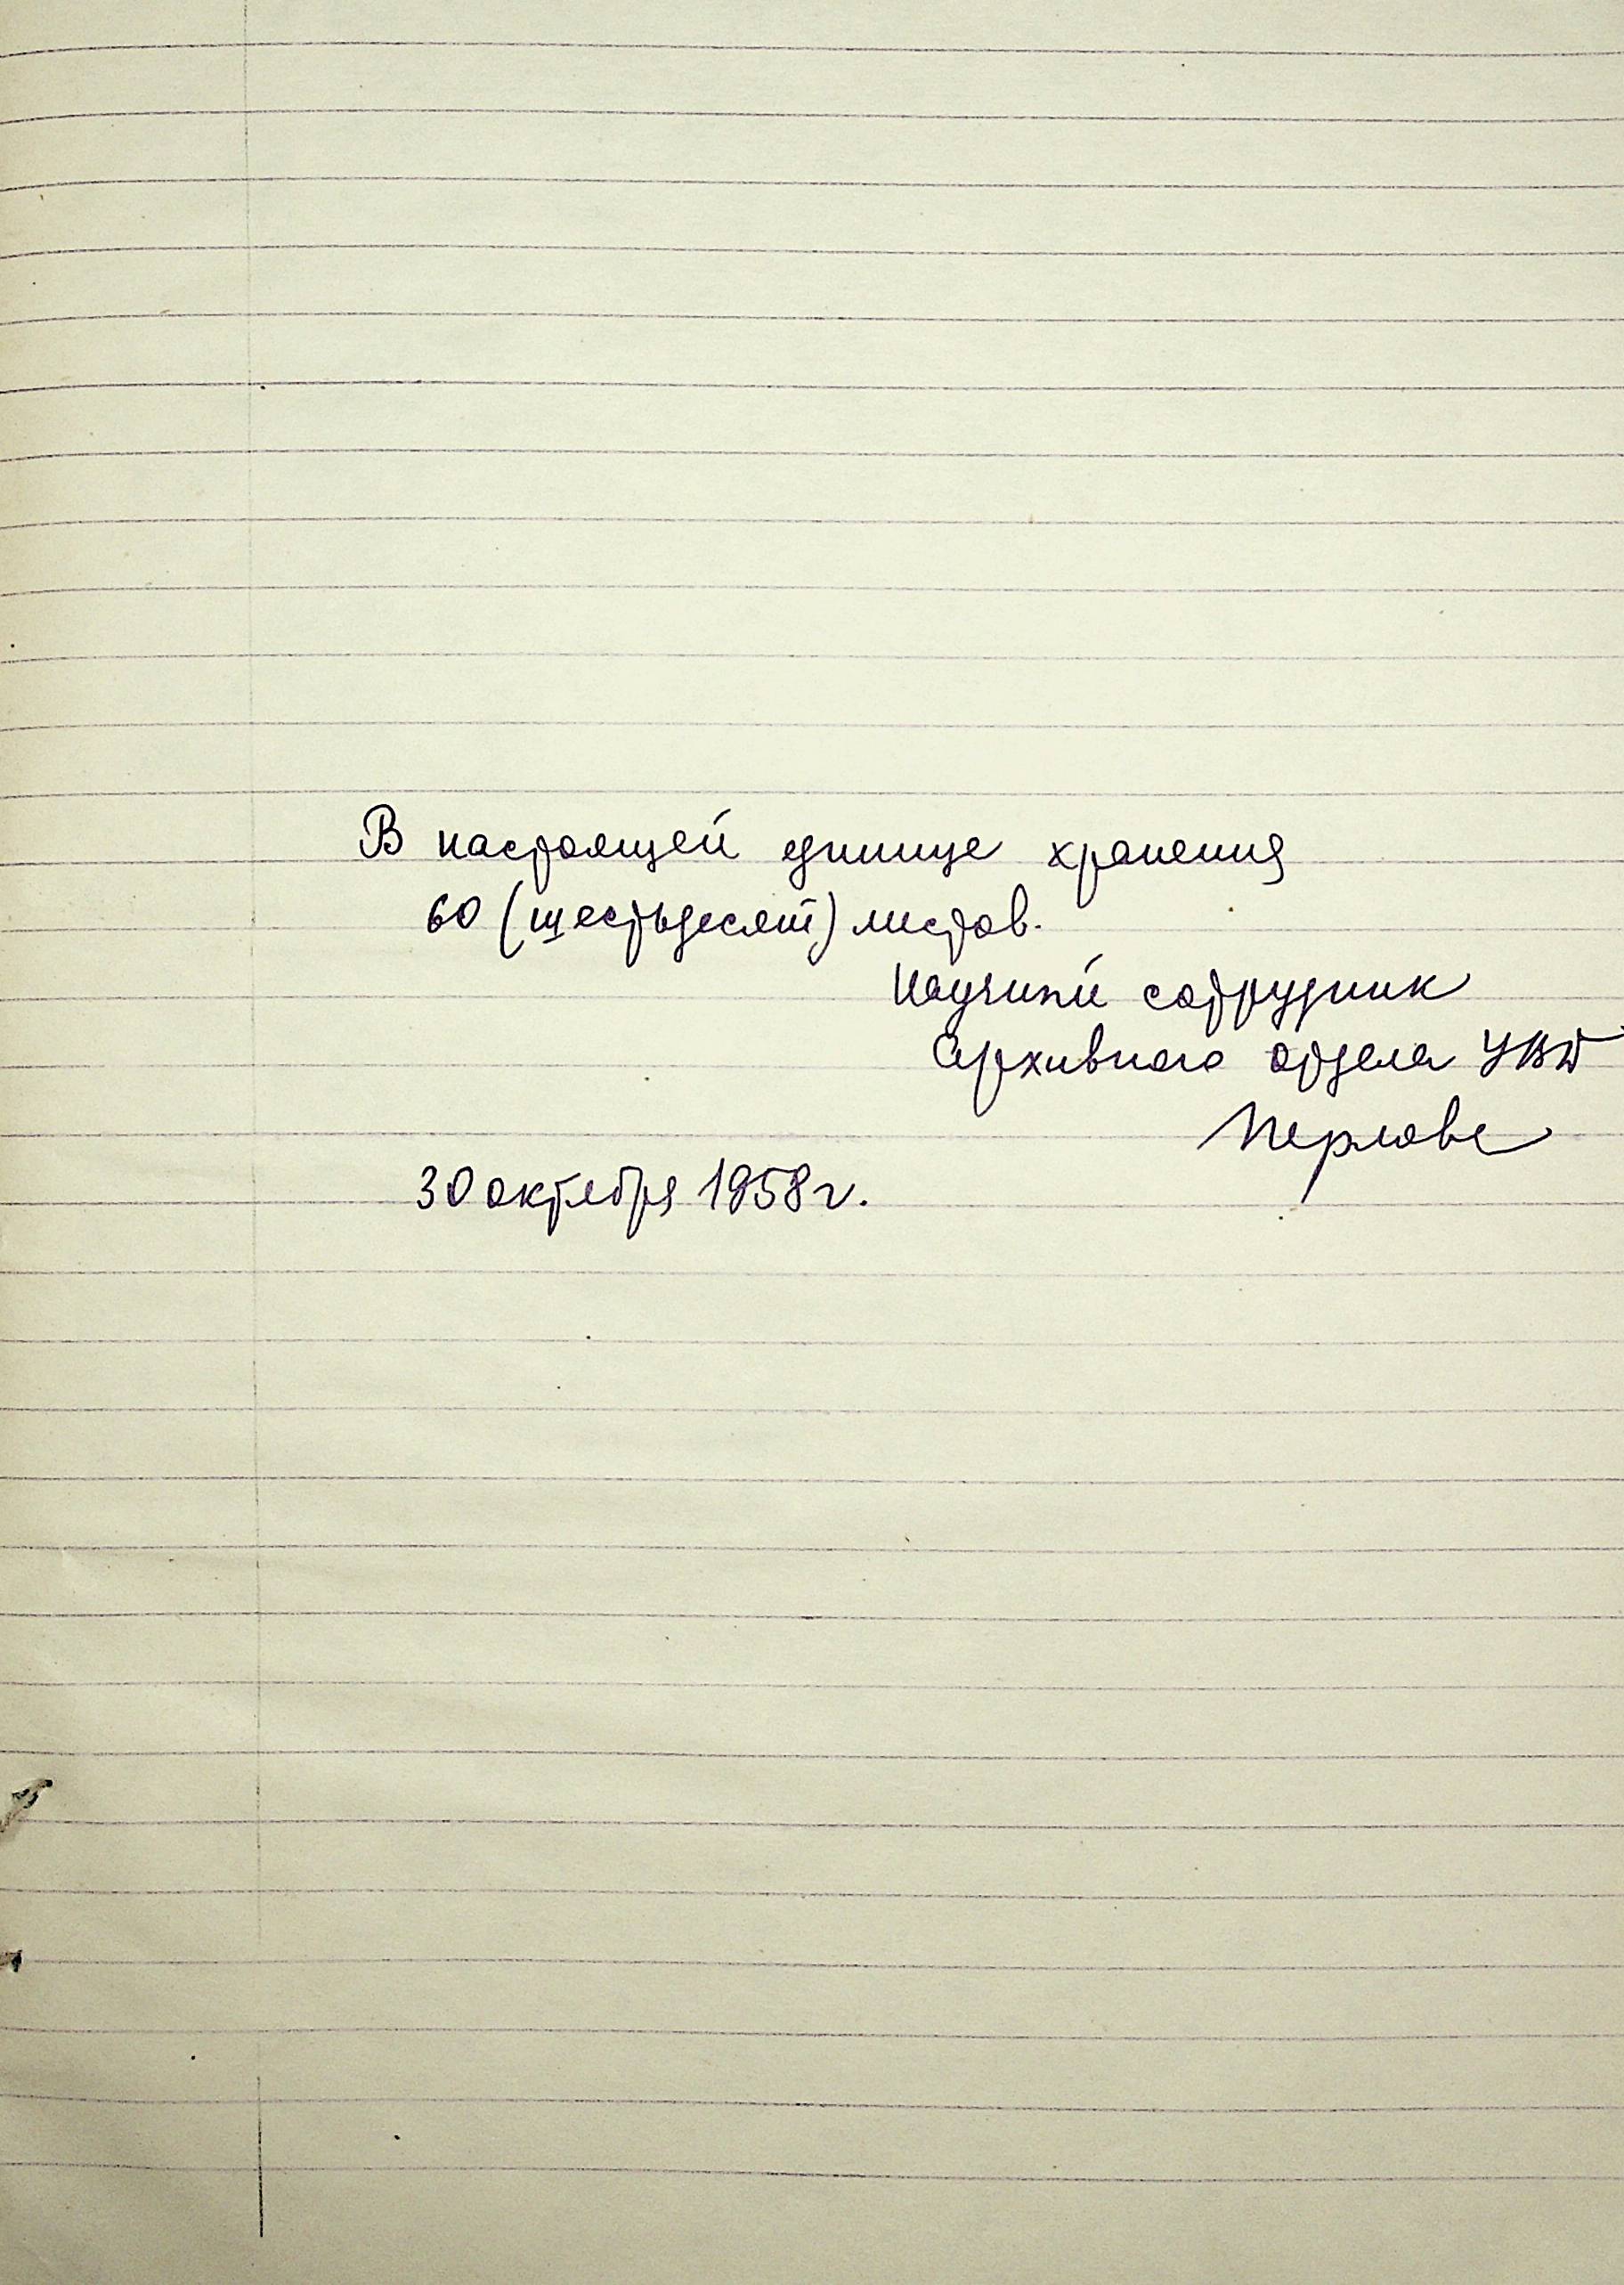 В настоящей единице хранения
60 (шестьдесят) листов.
Научный сотрудник
Архивного отдела УВД
30 октября 1958 г.